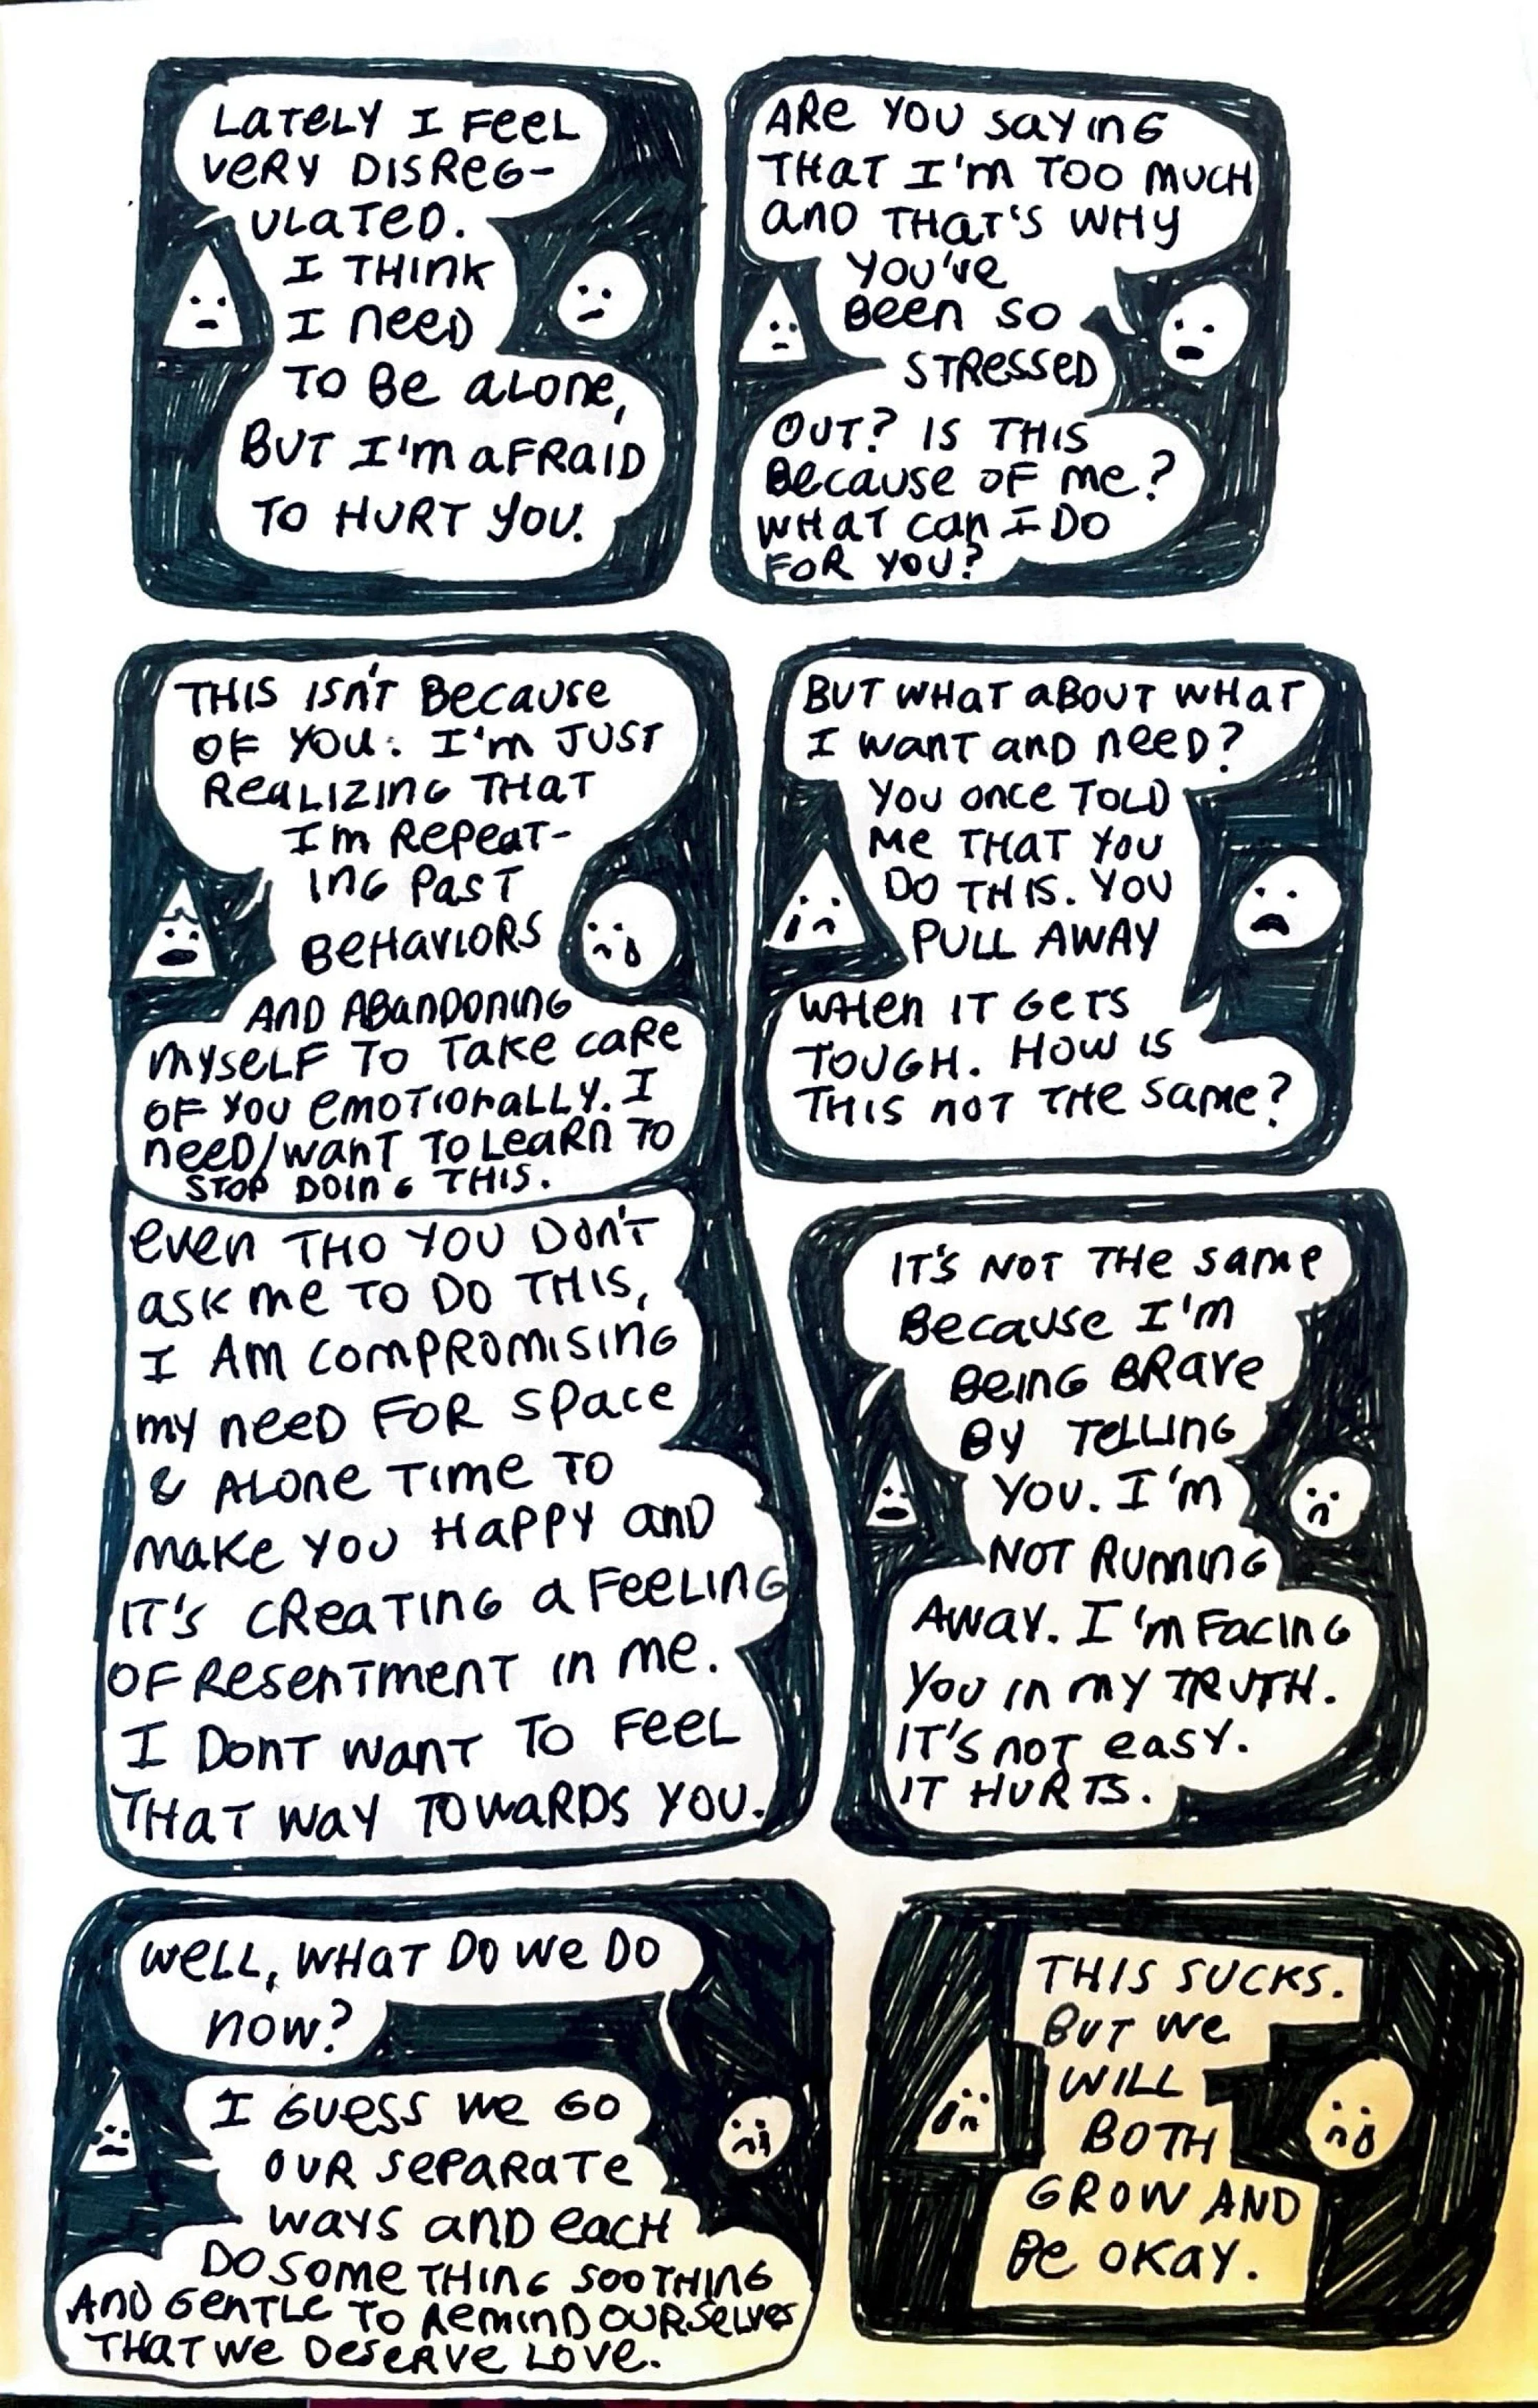 LATELY I FEEL
VERY DISREG-
ULATED.
I THINK
I NEED
TO BE ALONE,
BUT I'M AFRAID
TO HURT YOU.
ARE YOU SAYING
THAT I'M TOO MUCH
AND THAT'S WHY
YOU'VE
BEEN SO
STRESSED
OUT? IS THIS
BECAUSE OF ME?
WHAT CAN I DO
FOR YOU?
THIS ISN'T BECAUSE
OF YOU. I'M JUST
REALIZING THAT
I'M REPEAT-
ING PAST
BEHAVIORS
AND ABANDONING
MYSELF TO TAKE CARE
OF YOU EMOTIONALLY. I
NEED/WANT TO LEARN TO
STOP DOING THIS.
EVEN THO YOU DON'T
ASK ME TO DO THIS,
I AM COMPROMISING
MY NEED FOR SPACE
& ALONE TIME TO
MAKE YOU HAPPY AND
IT'S CREATING A FEELING
OF RESENTMENT IN ME.
I DONT WANT TO FEEL
THAT WAY TOWARDS YOU.
BUT WHAT ABOUT WHAT
I WANT AND NEED?
YOU ONCE TOLD
ME THAT YOU
DO THIS. YOU
PULL AWAY
WHEN IT GETS
TOUGH. HOW IS
THIS NOT THE SAME?
IT'S NOT THE SAME
BECAUSE I'M
BEING BRAVE
BY TELLING
YOU. I'M
NOT RUNNING
AWAY. I'M FACING
YOU IN MY TRUTH.
IT'S NOT EASY.
IT HURTS.
WELL, WHAT DO WE DO
NOW?
I GUESS WE GO
OUR SEPARATE
WAYS AND EACH
DO SOMETHING SOOTHING
AND GENTLE TO REMIND OURSELVES
THAT WE DESERVE LOVE.
THIS SUCKS.
BUT WE
WILL
BOTH
GROW AND
BE OKAY.